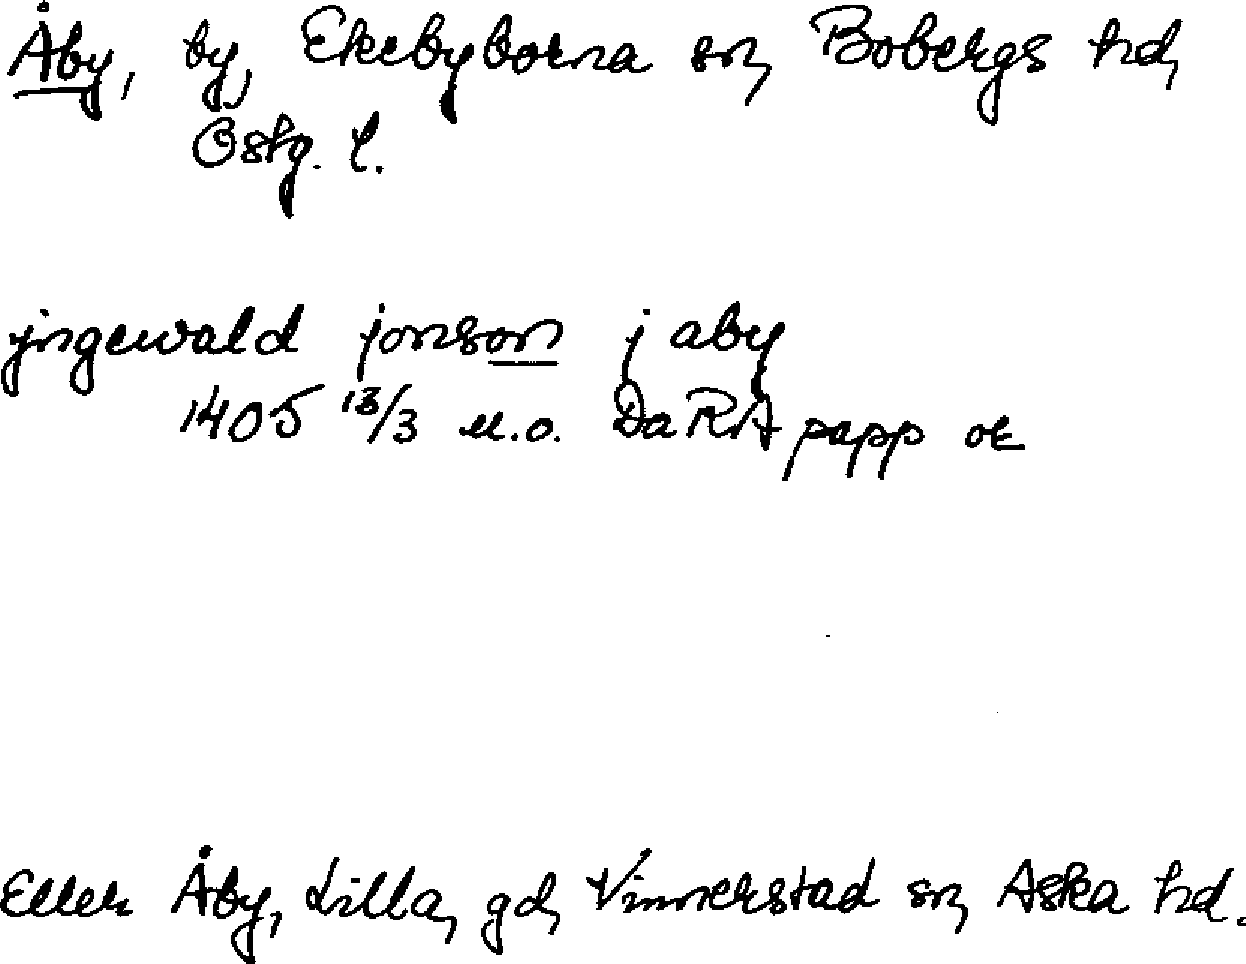 Åby, by, Ekebyborna sn, Bobergs hd,
Östg. l.
jngewald jonsson j aby
1405 13/3 u.o. DaRA papp or
Eller Åby, Lilla, gd, Vinnerstad sn, Aska hd.